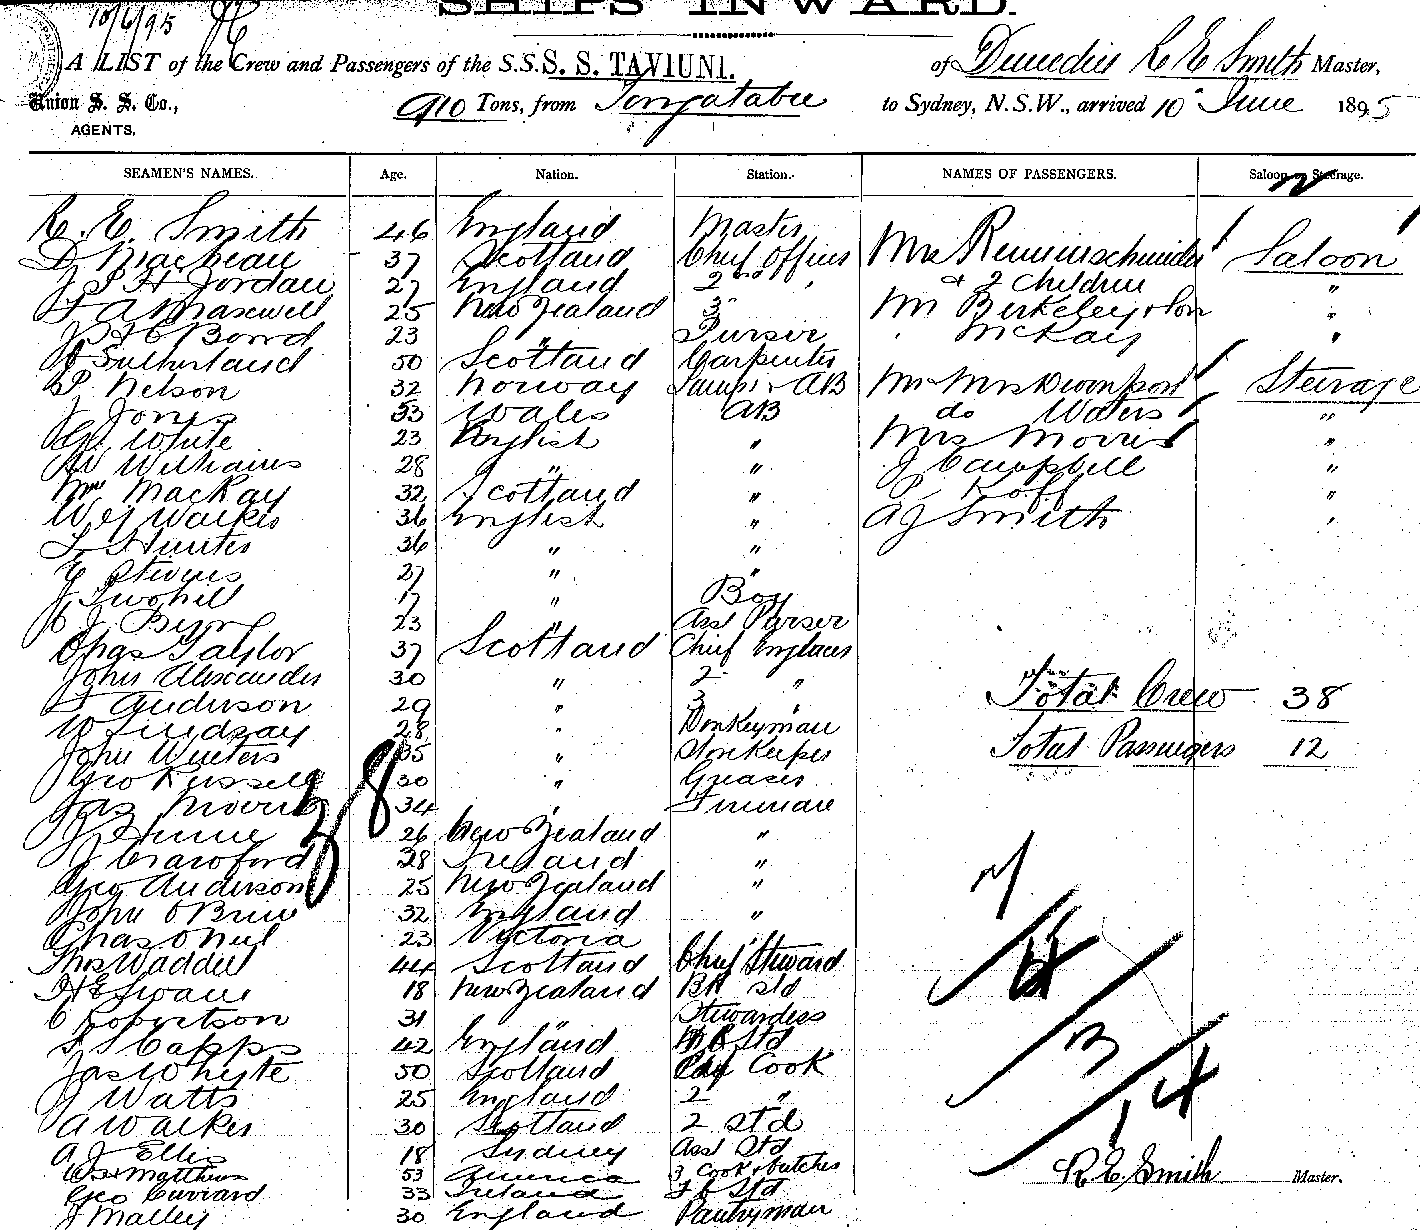 SHIPS INWARD.
10/6/95
A LIST of the Crew and Passengers of the S.S. S. S. TAVIUNI. of Dunedin R E Smith Master,
Union S. S. Co., AGENTS, 910 Tons, from Tongatabu to Sydney, N.S.W., arrived 10 June 1895
SEAMEN'S NAMES. Age. Nation. Station. NAMES OF PASSENGERS. Saloon or Steerage.
R. E. Smith 46 England Master Mrs Saloon
D Macbeau 37 Scotland Chief Officer & 2 Children "
J S H Jordan 27 England 2nd " Mr Berkeley & Son "
F A Maxwell 25 New Zealand 3 " McKay "
J H C Bond 23 " Purser
Sutherland 50 Scotland Carpenter
P Nelson 32 Norway Lamps & AB Mr Mrs Davenport Steerage
J Jones 33 Wales AB do Waters "
White 23 English " Mrs Morris "
W Williams 28 " " J Campbell "
Wm MacKay 32 Scotland " P Koff "
W J Walker 36 English " A J Smith "
L Hunter 36 " "
E Stevens 27 " "
J Twohill 17 " Boy
C J Byrne 23 " Asst Purser
Chas Taylor 37 Scotland Chief Engineer
John Alexander 30 " 2 "
Anderson 29 " 3 "
Total Crew 38
W Lindsay 28 " Donkeyman
John Winters 35 " Storekeeper
Total Passengers 12
Geo Russell 30 " Greaser
Jas Morris 34 " Fireman
38
J Hume 26 New Zealand "
J Crawford 28 Ireland "
Geo Anderson 25 New Zealand "
John O'Brien 32 England "
Chas O'Neil 23 Victoria "
Thos Waddell 44 Scotland Chief Steward
H E Swan 18 New Zealand Std
C Robertson 31 " Stewardess
Capps 42 England Std
Jas Whyte 50 Scotland Cook
J Watts 25 England 2 "
A Walker 30 Scotland 2 Std
14
A J Ellis 18 Sydney Asst Std
Matthews 53 America 3 Cook & butcher
R E Smith Master.
Geo Curvard 33 Ireland Std
J Malley 30 England Pantryman